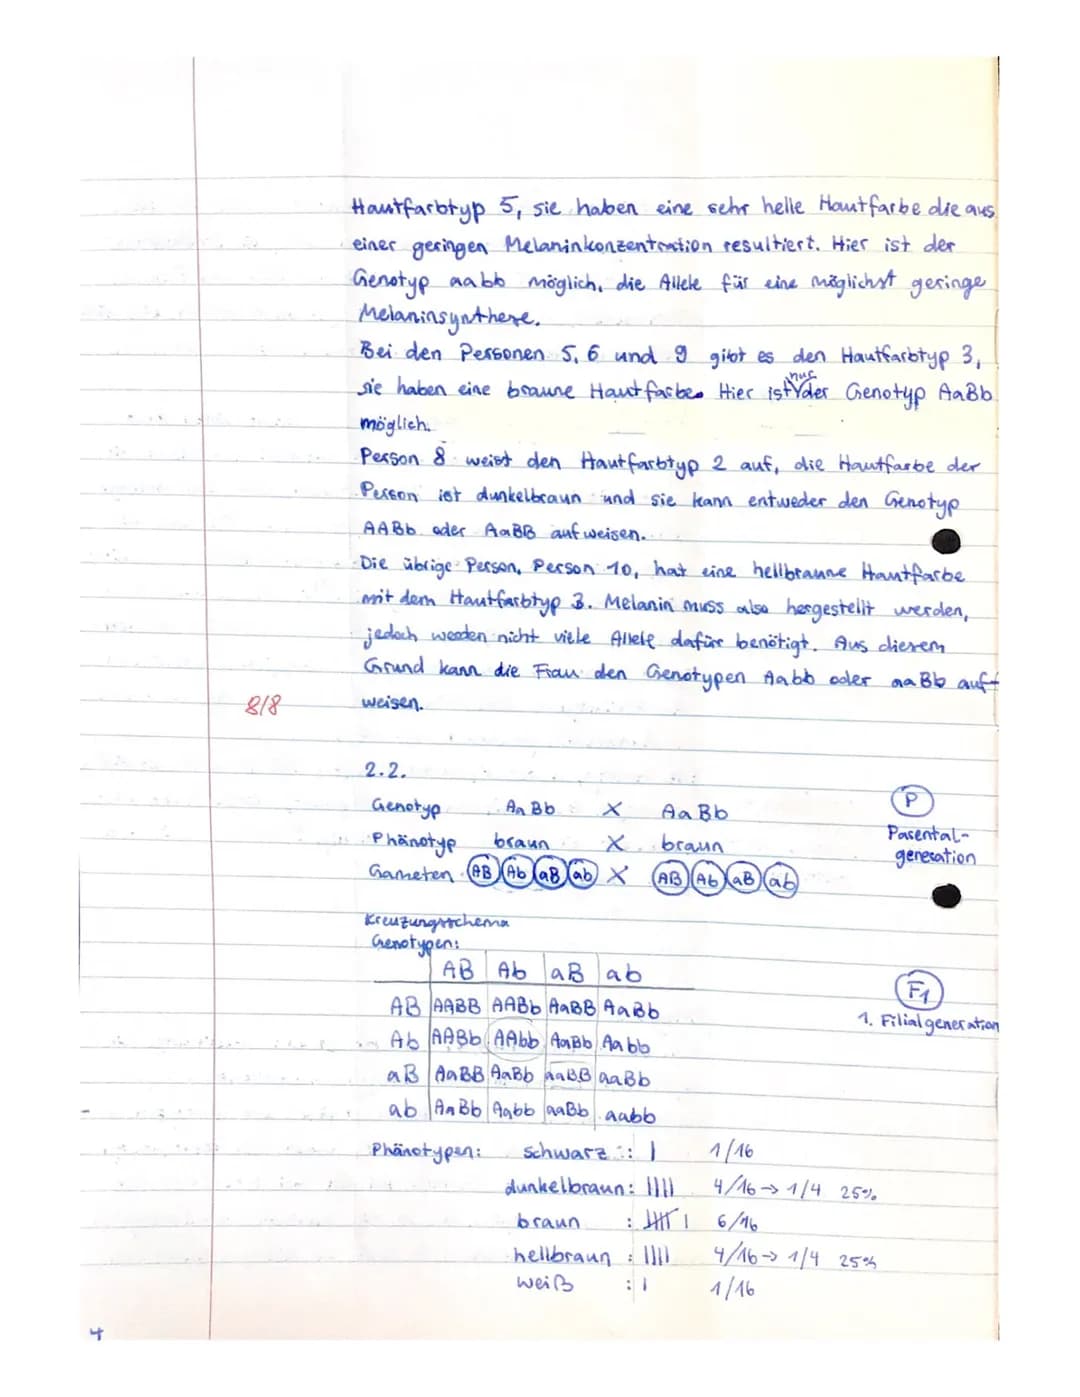 Hautfarbtyp 5, sie haben eine sehr helle Hautfarbe die aus
einer geringen Melaninkonzentration resultiert. Hier ist der
Genotyp aabb möglich, die Allele für eine möglichst geringe
Melaninsynthese.
Bei den Personen 5, 6 und 9 gibt es den Hautfarbtyp 3,
nur
sie haben eine braune Hautfarbe. Hier ist der Genotyp AaBb
möglich.
Person 8 weist den Hautfarbtyp 2 auf, die Hautfarbe der
Person ist dunkelbraun und sie kann entweder den Genotyp
AABb oder AaBB aufweisen.
Die übrige Person, Person 10, hat eine hellbraune Hautfarbe
mit dem Hautfarbtyp 3. Melanin muss also hergestellt werden,
jedoch werden nicht viele Allele dafür benötigt. Aus diesem
Grund kann die Frau den Genotypen Aabb oder aaBb auf-
8/8 weisen.
2.2.
Genotyp AaBb X AaBb P
Phänotyp braun X braun Parental-
generation
Gameten AB Ab aB ab X AB Ab aB ab
Kreuzungsschema
Genotypen:
AB Ab aB ab F1
AB AABB AABb AaBB AaBb 1. Filialgeneration
Ab AABb AAbb AaBb Aabb
aB AaBB AaBb aaBB aaBb
ab AaBb Aabb aaBb aabb
Phänotypen: schwarz : | 1/16
dunkelbraun: |||| 4/16 → 1/4 25%
braun : |||| | 6/16
hellbraun : |||| 4/16 → 1/4 25%
weiß : | 1/16
4